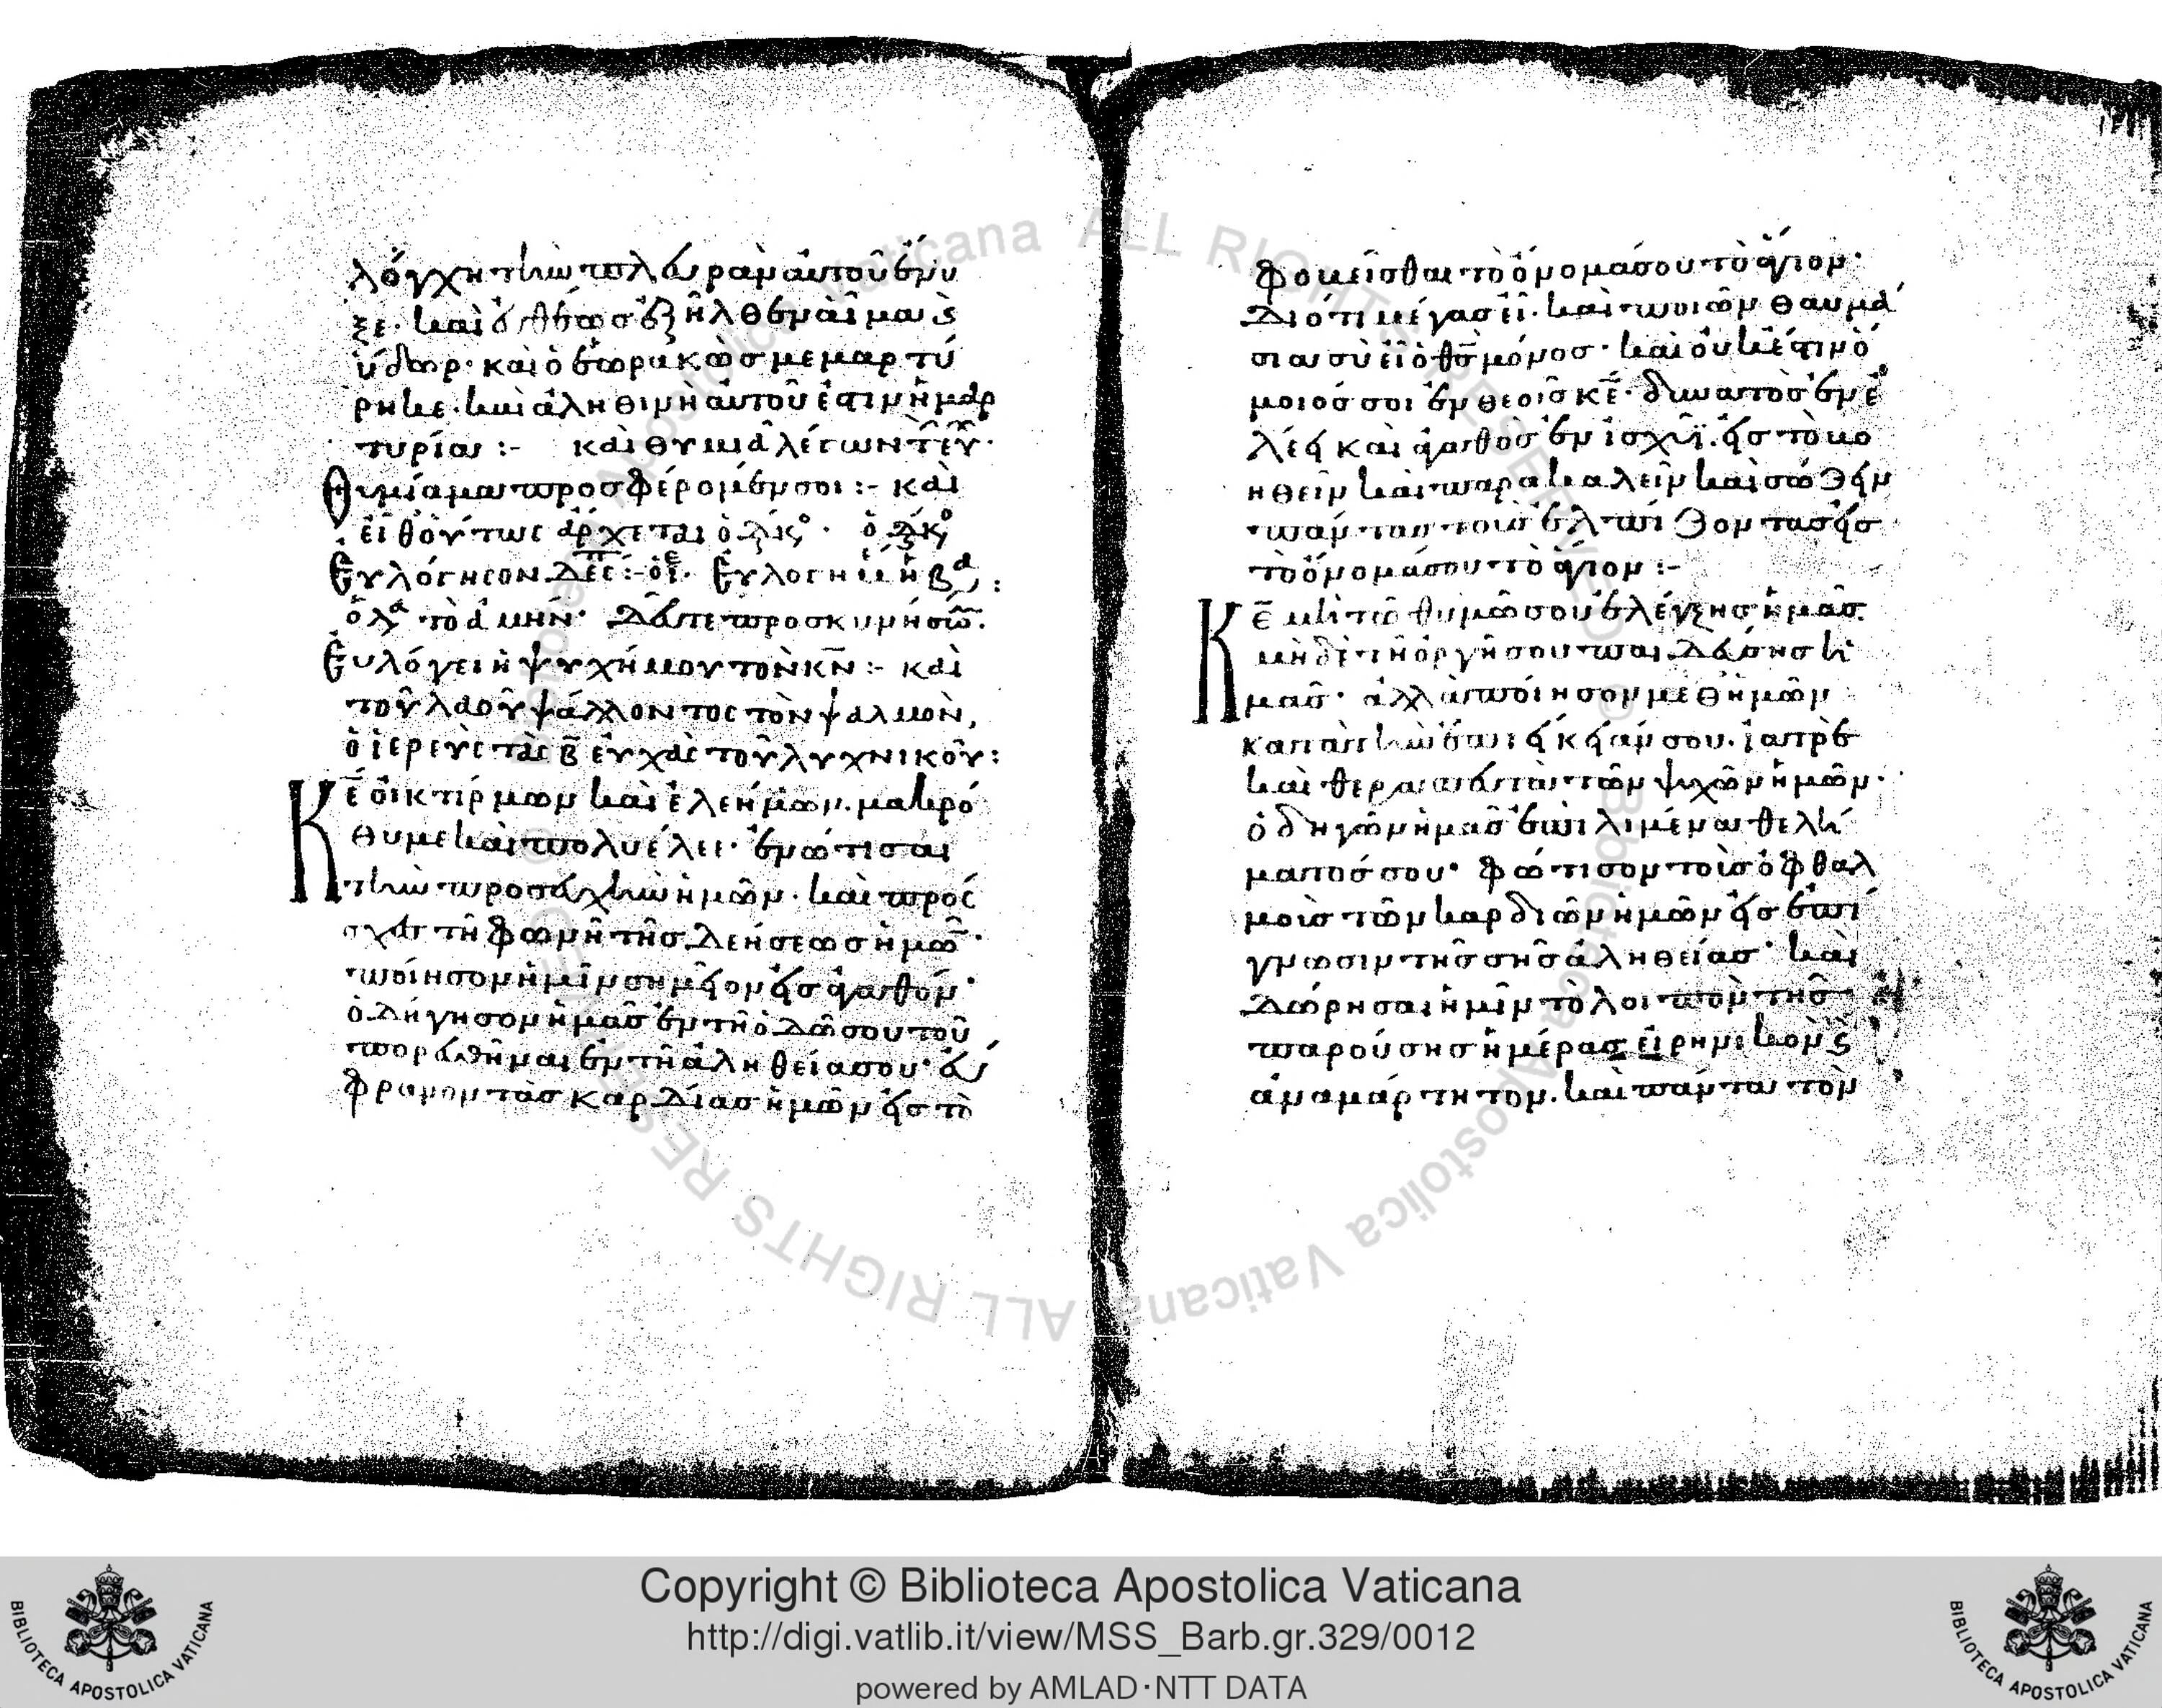 λόγχη τὴν πλευρὰν αὐτοῦ ἔνυ
ξε· καὶ εὐθέως ἐξῆλθεν αἷμα ϗ
ὕδωρ· καὶ ὁ ἑωρακὼς μεμαρτύ
ρηκε· καὶ ἀληθινὴ αὐτοῦ ἐστιν ἡ μαρ
τυρία :- καὶ θυμιᾶ λέγων τ εὐ·
Θυμίαμα προσφέρομέν σοι :- καὶ
εἶθ οὕτως ἄρχεται ὁ διάκο· ὁ διάκο
Εὐλόγησον δες :- ὁ ἱε· Εὐλογημ ἡ βα :
ὁ λα τὸ ἀμήν· Δεῦτε προσκυνήσω.
Εὐλόγει ἡ ψυχή μου τὸν κν :- καὶ
τοῦ λαοῦ ψάλλοντος τὸν ψαλμὸν,
ὁ ἱερεὺς τὰς β εὐχὰς τοῦ λυχνικοῦ :
Κε οἰκτίρμων καὶ ἐλεήμων· μακρό
θυμε καὶ πολυέλεε· ἐνώτισαι
τὴν προσευχὴν ἡμῶν· καὶ πρός
σχες τῆ φωνῆ τῆς δεήσεως ἡμῶ·
ποίησον ἡμῖν σημεῖον εἰς ἀγαθόν·
ὁδήγησον ἡμᾶς ἐν τῆ ὁδῶ σου τοῦ
πορεύεσθαι ἐν τῆ ἀληθεία σου· εὔ
φρανον τὰς καρδίας ἡμῶν εἰς τὸ
φοβεῖσθαι τὸ ὄνομά σου τὸ ἅγιον·
Διότι μέγας εἶ· καὶ ποιῶν θαυμά
σια σὺ εἶ ὁ θς μόνος· καὶ οὐκ ἔστιν ὅ
μοιός σοι ἐν θεοῖς κε· δυνατὸς ἐν ἐ
λέει καὶ ἀγαθὸς ἐν ἰσχύϊ· εἰς τὸ βο
ηθεῖν καὶ παρακαλεῖν καὶ σώζειν
πάντας τοὺς ἐλπίζοντας εἰς
τὸ ὄνομά σου τὸ ἅγιον :-
Κε μὴ τῶ θυμῶ σου ἐλέγξης ἡμᾶς·
μηδὲ τῆ ὀργῆ σου παιδεύσης ἡ
μᾶς· ἀλλὰ ποίησον μεθ ἡμῶν
κατὰ τὴν ἐπιείκειάν σου· ἰατρὲ
καὶ θεραπευτὰ τῶν ψυχῶν ἡμῶν·
ὁδηγῶν ἡμᾶς ἐπὶ λιμένα θελή
ματός σου· φώτισον τοὺς ὀφθαλ
μοὺς τῶν καρδιῶν ἡμῶν εἰς ἐπί
γνωσιν τῆς σῆς ἀληθείας· καὶ
δώρησαι ἡμῖν τὸ λοιπὸν τῆς
παρούσης ἡμέρας εἰρηνικὸν ϗ
ἀναμάρτητον· καὶ πάντα τὸν
Copyright © Biblioteca Apostolica Vaticana
http://digi.vatlib.it/view/MSS_Barb.gr.329/0012
powered by AMLAD·NTT DATA
BIBLIOTECA APOSTOLICA VATICANA
BIBLIOTECA APOSTOLICA VATICANA